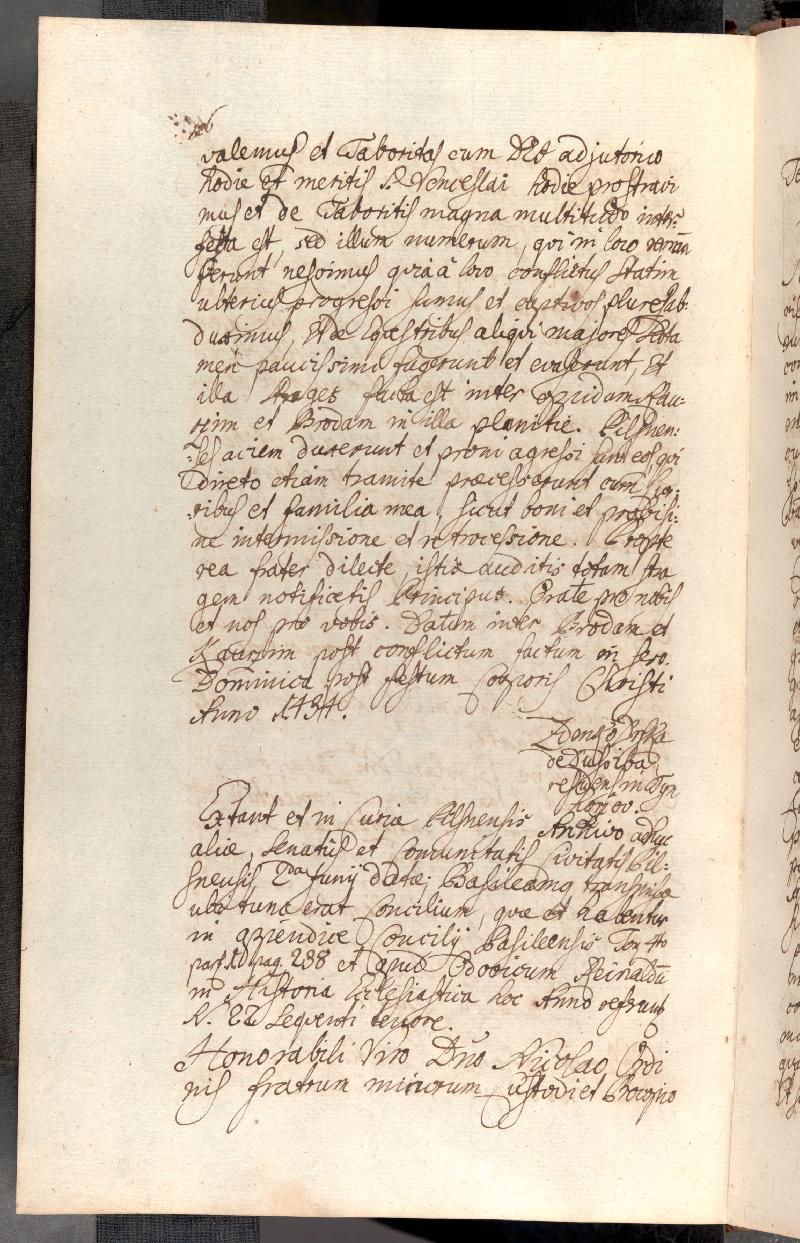 valemus et Taboritas cum DEO adjutorio
hodie et meritis S. Venceslai hodie prostravi
mus et de Taboritis magna multitudo inter-
fecta est, sed illum numerum, qui in loco reman
serunt nescimus quia à loco conflictus statim
ulterius progressi sumus et captivos plures ab-
duximus, et de Equestribus aliqui majores
meri paucissimi fugerunt et evaserunt, Et
illa strages facta est inter oppidum Kau-
rzim et Brodam in illa planitie. Pilsnen:
:ses aciem duxerunt et primi agressi sunt eos, qui
Directo etiam tramite præcesserunt cum
:ribus et familia mea, sicut boni et probi si:
ne intermissione et retrocessione. Propte
rea frater dilecte, istis auditis totam stra
gem notificetis Principus. Orate pro nobis
et nos pro vobis. Datum inter Brodam et
Kaurzim post conflictum factum in sero.
Dominica post festum Corporis Christi
Anno 1434.
de
residens in Tyn
Horssov.
Extant et in Curiæ Pilsnensis Archivo adhuc
aliæ, Senatus et Communitatis Civitatis Pil:
snensis, 2da Junij datæ; Basileamq transmissæ
ubi tunc erat Concilium, quæ et habentur
in appendice Concilij Basileensis Tom 4to
pag. 238 et apud Odoricum Reinaldu
in Historia Ecclesiastica hoc Anno referunt
N. 22 Sequenti tenore.
Honorabili Viro Dno Nicolao Ordi
nis fratrum minorum Custodi et Procopio